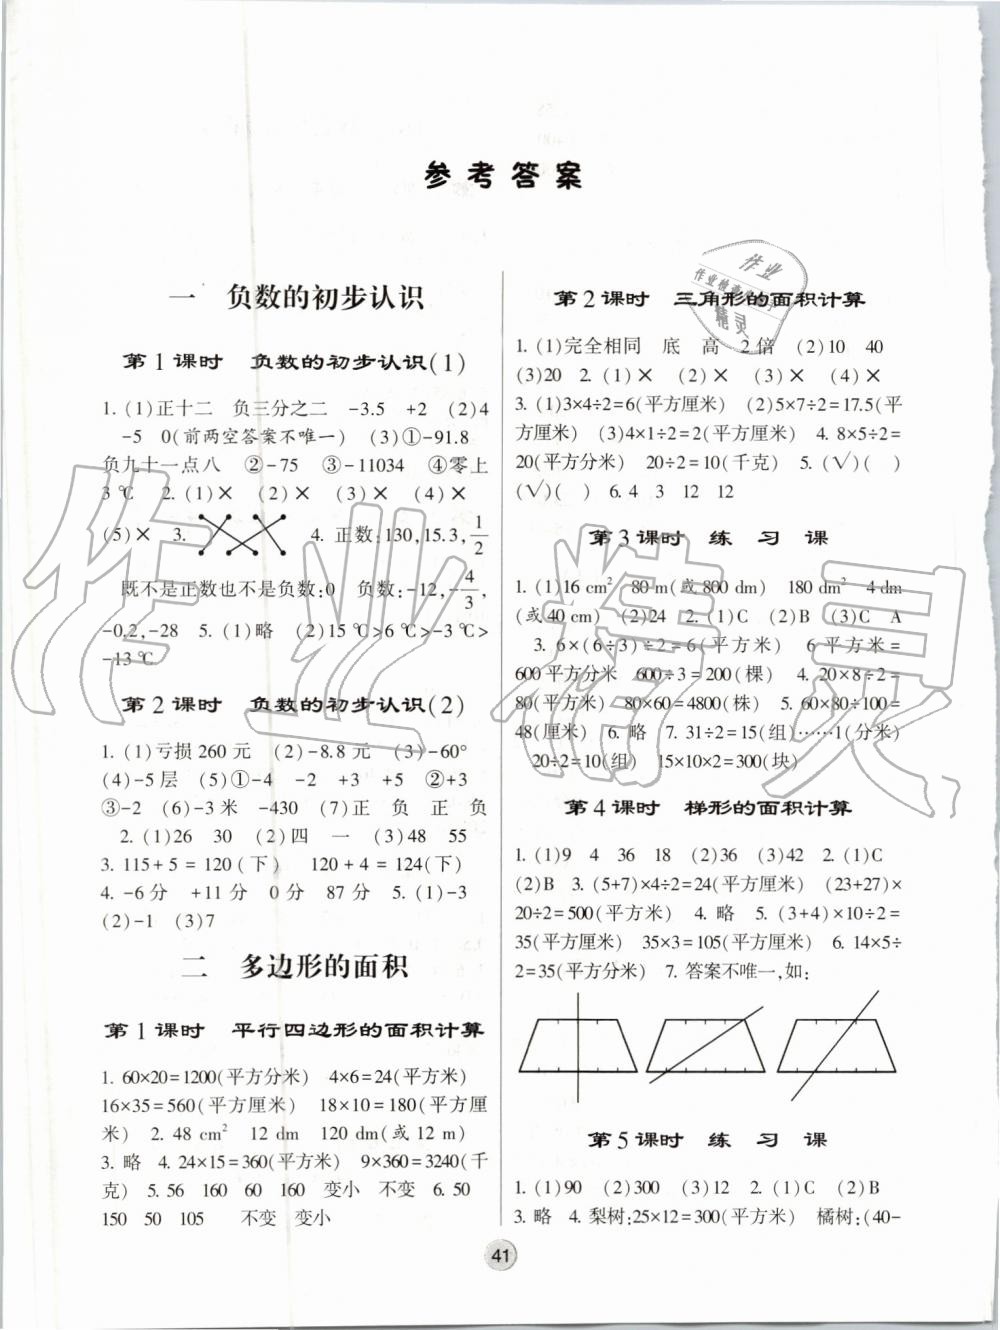 参考答案
一 负数的初步认识
第1课时 负数的初步认识(1)
1. (1)正十二 负三分之二 -3.5 +2 (2)4
-5 0(前两空答案不唯一) (3)①-91.8
负九十一点八 ②-75 ③-11034 ④零上
3 ℃ 2. (1)× (2)× (3)× (4)×
(5)× 3. 4. 正数:130,15.3,1/2
既不是正数也不是负数:0 负数:-12,-4/3,
-0.2,-28 5. (1)略 (2)15 ℃>6 ℃>-3 ℃>
-13 ℃
第2课时 负数的初步认识(2)
1. (1)亏损 260 元 (2)-8.8 元 (3)-60°
(4)-5 层 (5)①-4 -2 +3 +5 ②+3
③-2 (6)-3 米 -430 (7)正 负 正 负
2. (1)26 30 (2)四 一 (3)48 55
3. 115+5=120(下) 120+4=124(下)
4. -6分 +11分 0分 87分 5. (1)-3
(2)-1 (3)7
二 多边形的面积
第1课时 平行四边形的面积计算
1. 60×20=1200(平方分米) 4×6=24(平方米)
16×35=560(平方厘米) 18×10=180(平方厘
米) 2. 48 cm² 12 dm 120 dm(或 12 m)
3. 略 4. 24×15=360(平方米) 9×360=3240(千
克) 5. 56 160 60 160 变小 不变 6. 50
150 50 105 不变 变小
第2课时 三角形的面积计算
1. (1)完全相同 底 高 2倍 (2)10 40
(3)20 2. (1)× (2)× (3)× (4)×
3. (1)3×4÷2=6(平方厘米) (2)5×7÷2=17.5(平
方厘米) (3)4×1÷2=2(平方厘米) 4. 8×5÷2=
20(平方分米) 20÷2=10(千克) 5. (√)( )
(√)( ) 6. 4 3 12 12
第3课时 练习课
1. (1)16 cm² 80 m(或 800 dm) 180 dm² 4 dm
(或 40 cm) (2)24 2. (1)C (2)B (3)C A
3. 6×(6÷3)÷2=6(平方米) 6平方米=
600平方分米 600÷3=200(棵) 4. 20×8÷2=
80(平方米) 80×60=4800(株) 5. 60×80÷100=
48(厘米) 6. 略 7. 31÷2=15(组)……1(分米)
20÷2=10(组) 15×10×2=300(块)
第4课时 梯形的面积计算
1. (1)9 4 36 18 (2)36 (3)42 2. (1)C
(2)B 3. (5+7)×4÷2=24(平方厘米) (23+27)×
20÷2=500(平方米) 4. 略 5. (3+4)×10÷2=
35(平方厘米) 35×3=105(平方厘米) 6. 14×5÷
2=35(平方分米) 7. 答案不唯一,如:
第5课时 练习课
1. (1)90 (2)300 (3)12 2. (1)C (2)B
3. 略 4. 梨树:25×12=300(平方米) 橘树:(40-
41
作业精灵
作业
精灵